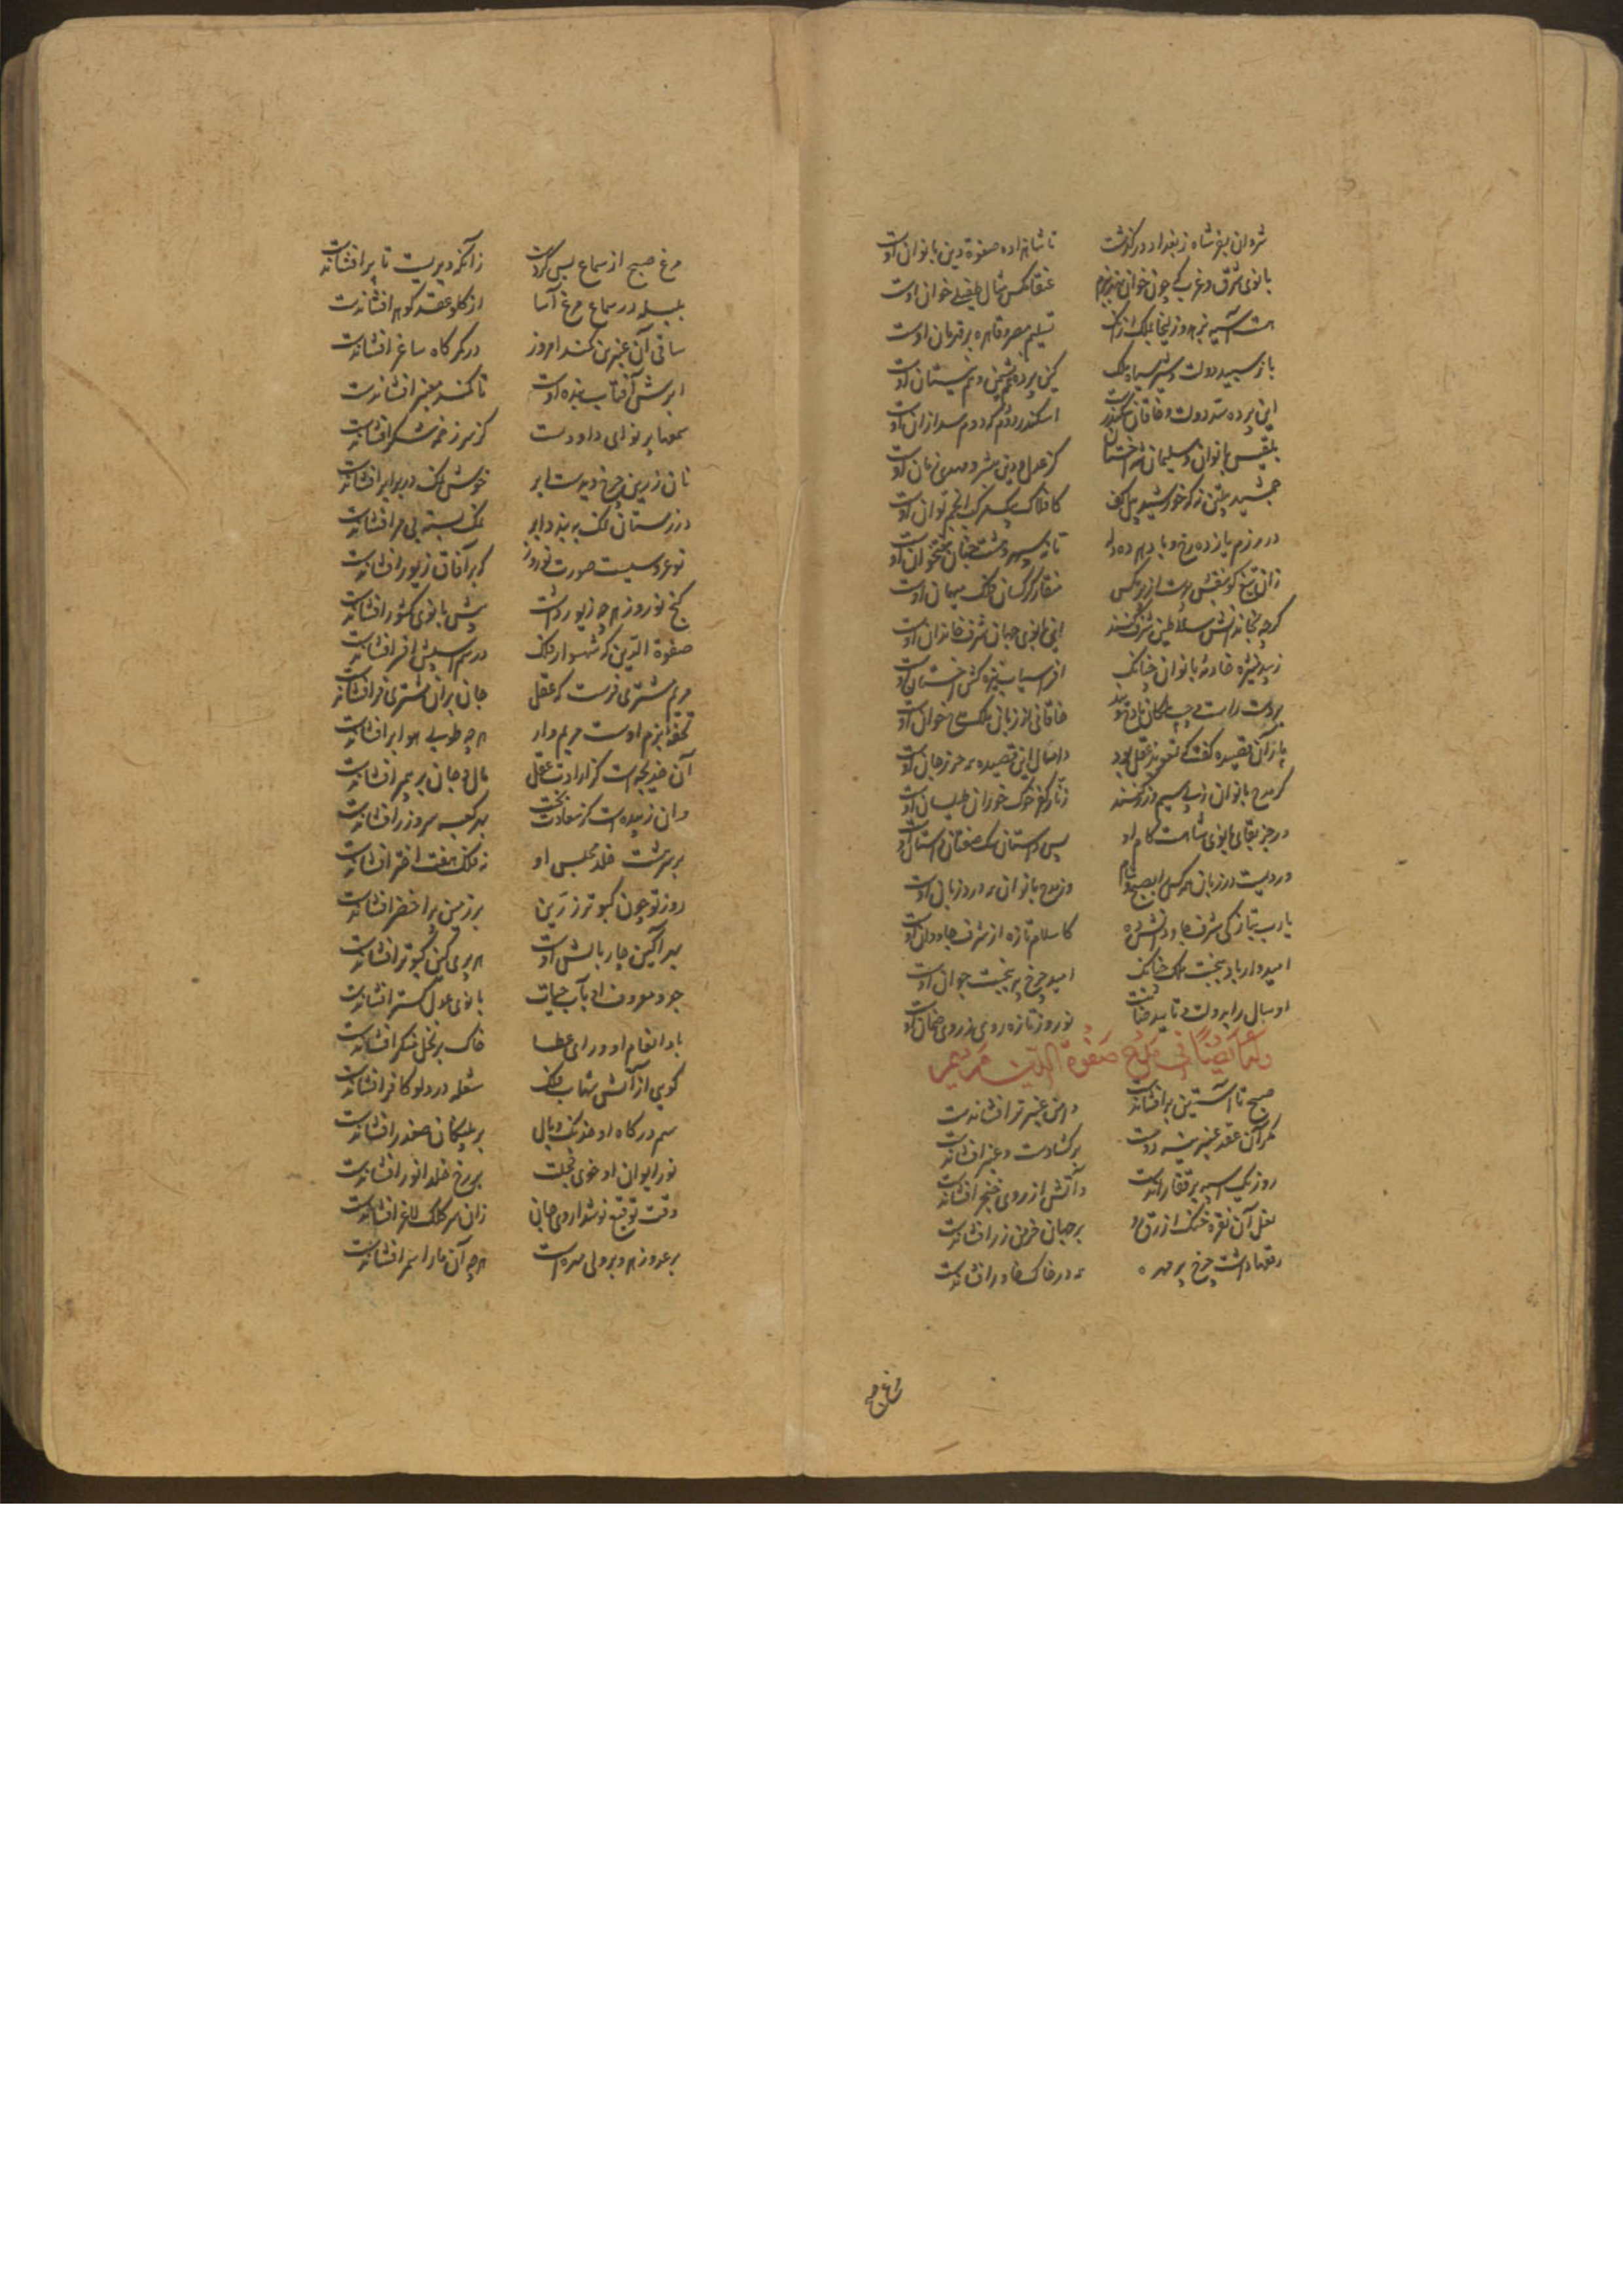 شروان بفر شاه ز بغداد درگذشت تا شاهزاده صفوة دین بانوان اوست
بانوی شرق و غرب که چون خوان نهد ببزم عنقا مگس مثال طفیلی خوان اوست
هست آسیه بزهد و زلیخا بملک از آنک تسلیم مصر و قاهره بر قهرمان اوست
باز سپید دولت و شیر سیاه ملک کین پرده نشیمن و نیستان اوست
این پرده سد دولت و خاقان سکندرست اسکندر دوم که دوم سد ازان اوست
بلقیس بانوان و سلیمان شه اخستان کز عدل و دین مبشر و مهدی زمان اوست
جمشید پیلتن نه که خورشید پیل کف کافلاک یک سفرک انجم توان اوست
در رزم یازده رخ و با دهر ده دله تا نه سپهر و هشت جنان هفتخوان اوست
زان تیغ کو بنفش ترست از پر مگس منقار کرکسان فلک میهمان اوست
گرچه بخاندانش سلاطین شرف کنند این بانوی جهان شرف خاندان اوست
زیبد منیژه خادمه بانوان چنانک افراسیاب نیزه کش اخستان اوست
بر دست راست و چپ ملکان مادح ویند خاقانی از زبان ملک مدح خوان اوست
پار آن قصیده گفت که تعویذ عقل بود و امسال این قصیده نه حرز جان اوست
گر مدح بانوان ز پی سیم و زر کنند زنار کفر خوک خوران طیلسان اوست
ور جز بقای بانوی شاهست کام او پس داستان سگ صفتان داستان اوست
وردیست در زبان همه کس را بصبح و شام وز مدح بانوان نه ورد زبان اوست
یارب بتازگی شرف جاودانش ده کاسلام تازه از شرف جاودان اوست
امیدوار باد ببخت ملک چنانک امید چرخ پیر ببخت جوان اوست
او سال را بدولت و تایید ضامنست نوروز تازه روی ز روی ضمان اوست
وله ایضا فی مدح صفوة الدین مریم
صبح تا آستین برافشاندست دامن عنبر تر افشاندست
مگر آن عقد عنبرینه دوست برگشادست و عنبر افشاندست
روز یک اسپه بر قضا راندست و آتش از روی خنجر افشاندست
نعل آن نقره خنگ ازرق بر جهان خرمن زر افشاندست
رقعها داشت چرخ پر مهره نه در خاک خاور افشاندست
مرغ صبح
مرغ صبح از سماع بس کردست زانکه دیریست تا پر افشاندست
بلبله در سماع مرغ آسا از گلو عقد گوهر افشاندست
ساقی آن عنبرین کمند امروز در گلوگاه ساغر افشاندست
ابرش آفتاب بنده اوست تا کمند معنبر افشاندست
سمعها بر نوای داودست کز سر زخمه شکر افشاندست
نان زرین چرخ دیدست ابر خوش نمک در برابر افشاندست
در زمستان نمک ببندد و ابر نمک بسته بی مر افشاندست
نو عروسیست صورت نوروز که بر آفاق زیور افشاندست
گنج نوروز هرچه زیور داشت پیش بانوی کشور افشاندست
صفوة الدین که شهسوار فلک در سم اسپش افسر افشاندست
مریم مشتری فرست که عقل جان بران مشتری فر افشاندست
تحفه بزم اوست مریم وار هرچه طوبی هوا بر افشاندست
آن خدیجه است کز ارادت عقل مال و جان بر پیمبر افشاندست
وان زبیده است کز سعادت بخت بدر کعبه سر و زر افشاندست
بر بهشت خلد مجلس او نه فلک هفت اختر افشاندست
روز نو چون کبوتر زرین بر زمین پر اخضر افشاندست
بهر آکین چار بالش اوست هر پری کین کبوتر افشاندست
جود معروف او بآب حیات بانوی عدل گستر افشاندست
باد انعام او ورای عطا خاک بر نخل شکر افشاندست
گویی از آتش شهاب فلک شعله در دلو کافر افشاندست
سم درگاه او خدنگ وبال بر پلنگان صفدر افشاندست
نور ایوان او خوی خجلت بر رخ خلد انور افشاندست
وقت توقیع نوشداروی جانی زان سر کلک لاغر افشاندست
بر عدو زهر و بر ولی مهره است هرچه آن مار اسمر افشاندست